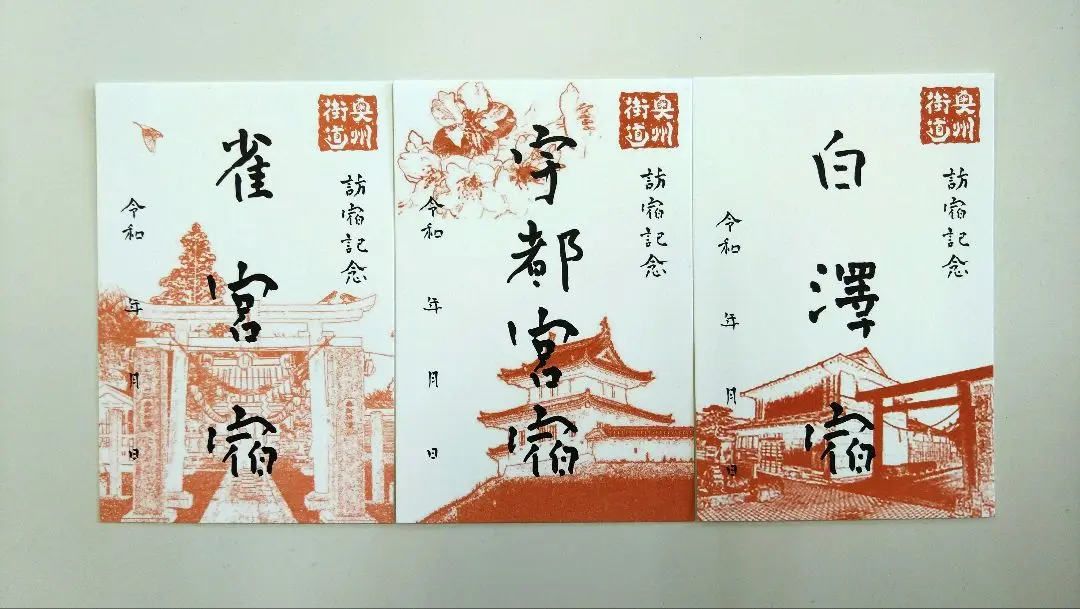 奥州街道
訪宿記念
雀宮宿
令和 年 月 日
奥州街道
訪宿記念
宇都宮宿
令和 年 月 日
奥州街道
訪宿記念
白澤宿
令和 年 月 日